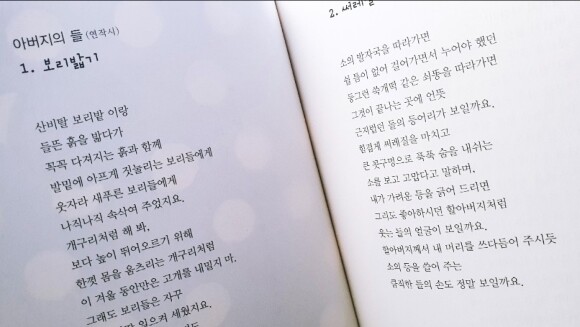 아버지의 들 (연작시)
1. 보리밟기
산비탈 보리밭 이랑
들뜬 흙을 밟다가
꼭꼭 다져지는 흙과 함께
발밑에 아프게 짓눌리는 보리들에게
웃자라 새푸른 보리들에게
나직나직 속삭여 주었지요.
개구리처럼 해 봐,
보다 높이 뛰어오르기 위해
한껏 몸을 움츠리는 개구리처럼
이 겨울 동안만은 고개를 내밀지 마.
그래도 보리들은 자꾸
일으켜 세웠지요.
2. 써레질
소의 발자국을 따라가면
쉴 틈이 없어 걸어가면서 누어야 했던
둥그런 쑥개떡 같은 쇠똥을 따라가면
그것이 끝나는 곳에 언뜻
근지럽던 들의 등어리가 보일까요.
힘겹게 써레질을 마치고
큰 콧구멍으로 푹푹 숨을 내쉬는
소를 보고 고맙다고 말하며,
내가 가려운 등을 긁어 드리면
그리도 좋아하시던 할아버지처럼
웃는 들의 얼굴이 보일까요.
할아버지께서 내 머리를 쓰다듬어 주시듯
소의 등을 쓸어 주는
큼직한 들의 손도 정말 보일까요.